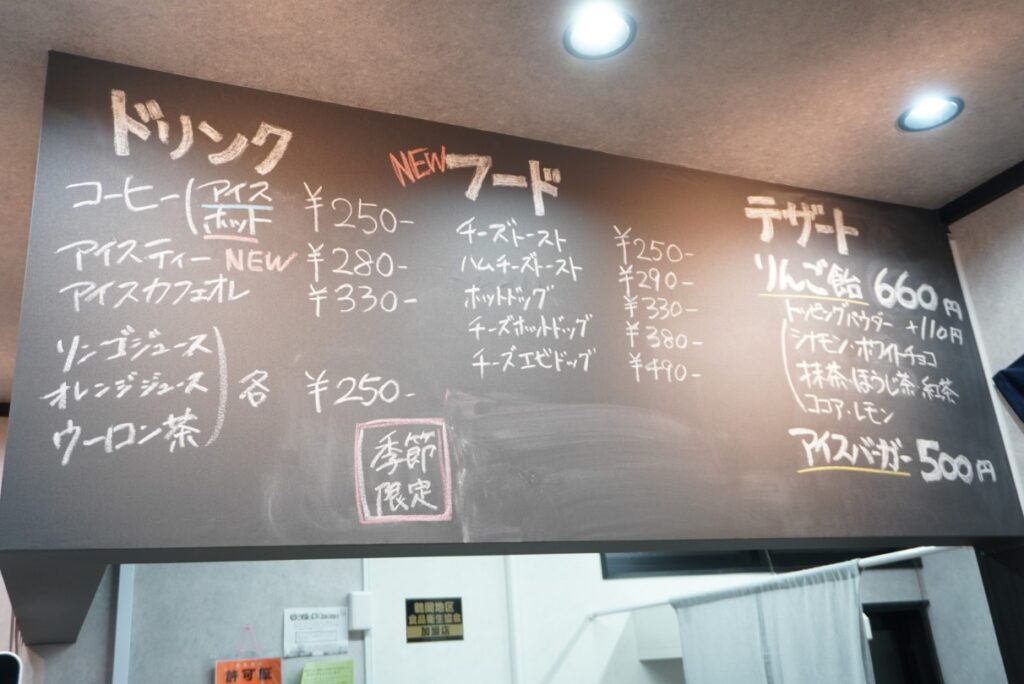 ドリンク
コーヒー(アイス
ホット ¥250-
アイスティー NEW ¥280-
アイスカフェオレ ¥330-
リンゴジュース
オレンジジュース
ウーロン茶
) 各 ¥250-
季節
限定
NEW フード
チーズトースト ¥250-
ハムチーズトースト ¥290-
ホットドッグ ¥330-
チーズホットドッグ ¥380-
チーズエビドッグ ¥490-
デザート
りんご飴 660円
トッピングパウダー +110円
(シナモン・ホワイトチョコ
抹茶・ほうじ茶・紅茶
ココア・レモン
アイスバーガー 500円
鶴岡地区
食品衛生協会
加盟店
許可席